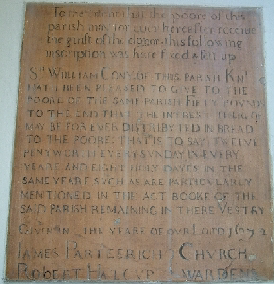 To the
poore of this
parish may for ever hereafter receive
the guift of the donor this following
inscription was here fixed
Sr William Cony of this parish Knt
hath been pleased to give to the
poore of the same parish fifty pounds
to the end that the interest
may be for ever distributed in bread
to the poore that is to say twelve
penyworth every sunday in every
yeare and eight holy dayes in the
same yeare such as are particularly
mentioned in the act booke of the
said parish remaining in there vestry
the yeare of our Lord 1672
James Partzerich Church
Robert Wardens